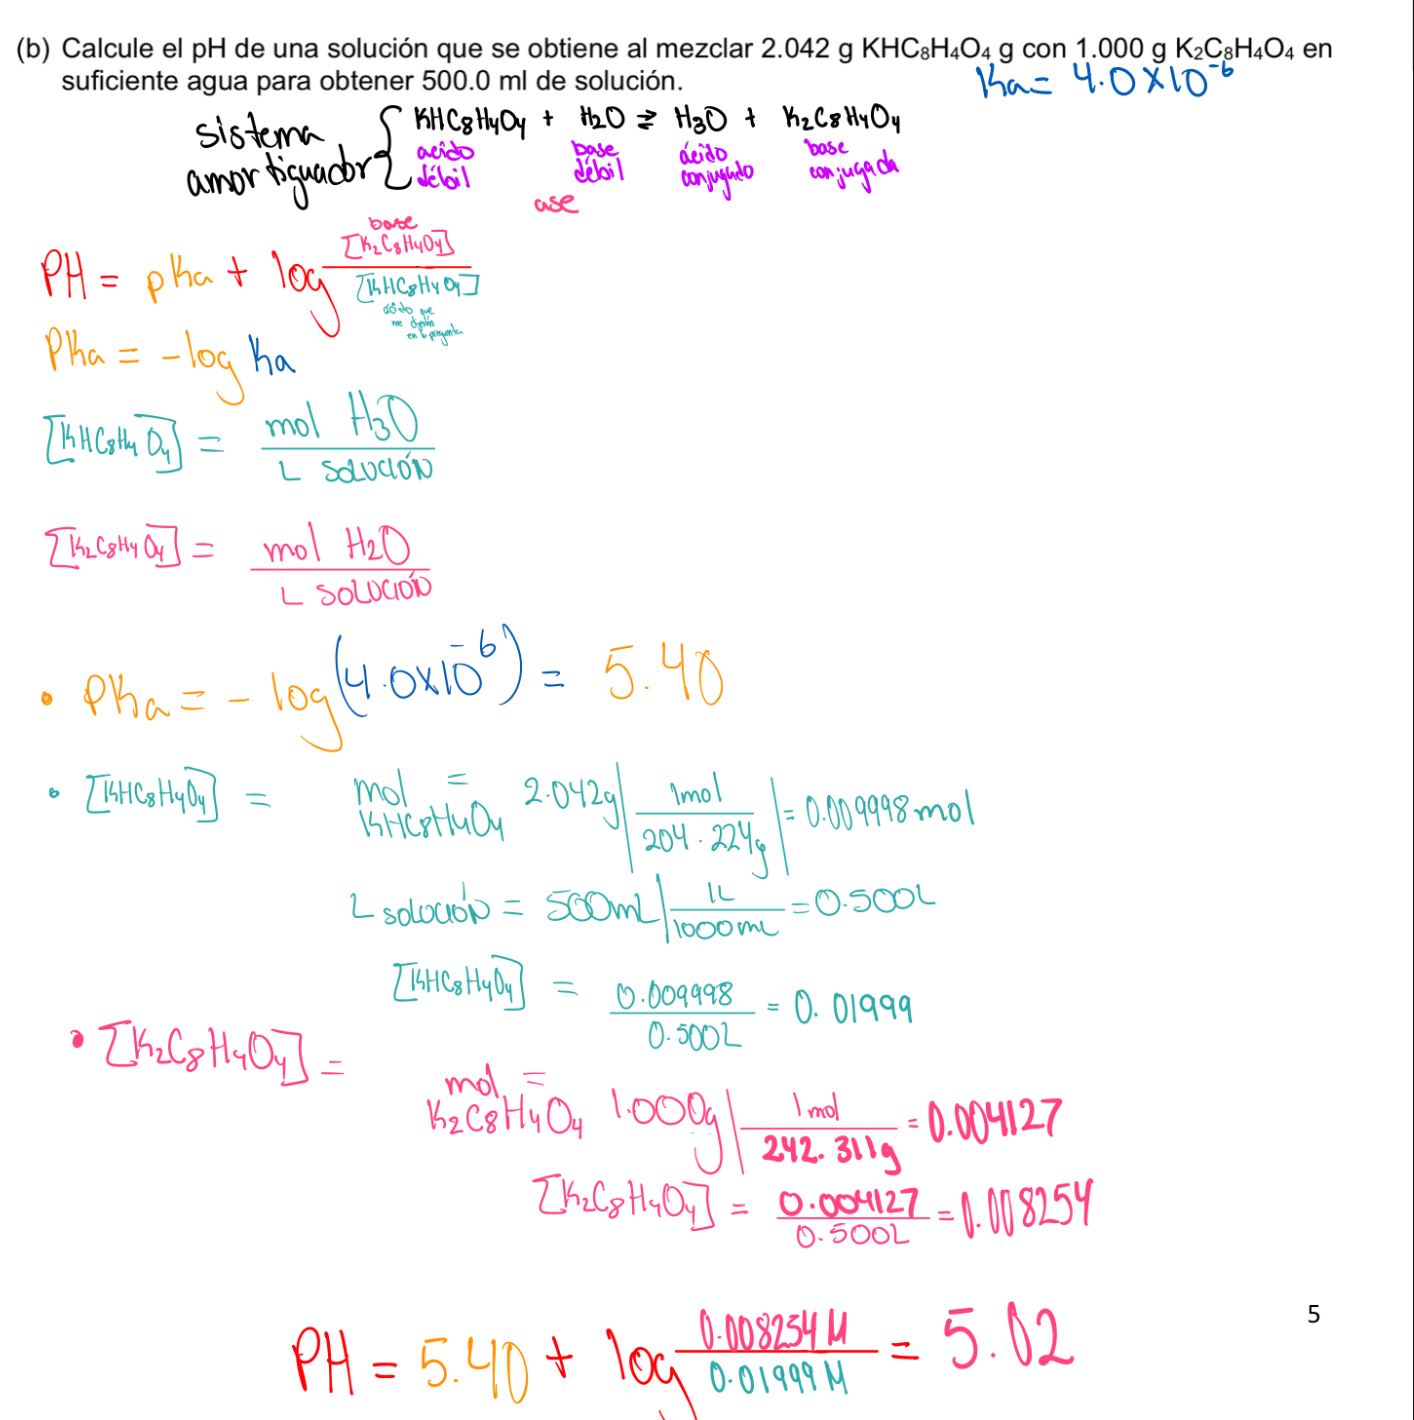 (b) Calcule el pH de una solución que se obtiene al mezclar 2.042 g KHC₈H₄O₄ g con 1.000 g K₂C₈H₄O₄ en
suficiente agua para obtener 500.0 ml de solución.
Ka = 4.0 x 10⁻⁶
sistema amortiguador { KHC8H4O4 + H2O ⇌ H3O + K2C8H4O4
acido débil base débil ácido conjugado base conjugada
ase
PH = pKa + log base [K2C8H4O4] / [KHC8H4O4]
ácido que
me dieron
en la pregunta
PKa = -log Ka
[KHC8H4O4] = mol H3O / L SOLUCIÓN
[K2C8H4O4] = mol H2O / L SOLUCIÓN
• PKa = - log (4.0x10⁻⁶) = 5.40
• [KHC8H4O4] = mol KHC8H4O4 = 2.042g | 1mol / 204.224g | = 0.009998 mol
L solución = 500mL | 1L / 1000mL = 0.500L
[KHC8H4O4] = 0.009998 / 0.500L = 0.01999
• [K2C8H4O4] =
mol K2C8H4O4 = 1.000g | 1mol / 242.311g = 0.004127
[K2C8H4O4] = 0.004127 / 0.500L = 0.008254
PH = 5.40 + log 0.008254 M / 0.01999 M = 5.02
5